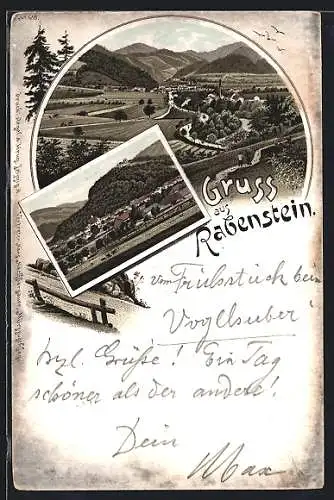 Gruss
aus
Rabenstein.
vom Frühstück bei
Vogllsuber
Hzl. Grüße! Ein Tag
schöner als der andere!
Dein
Max